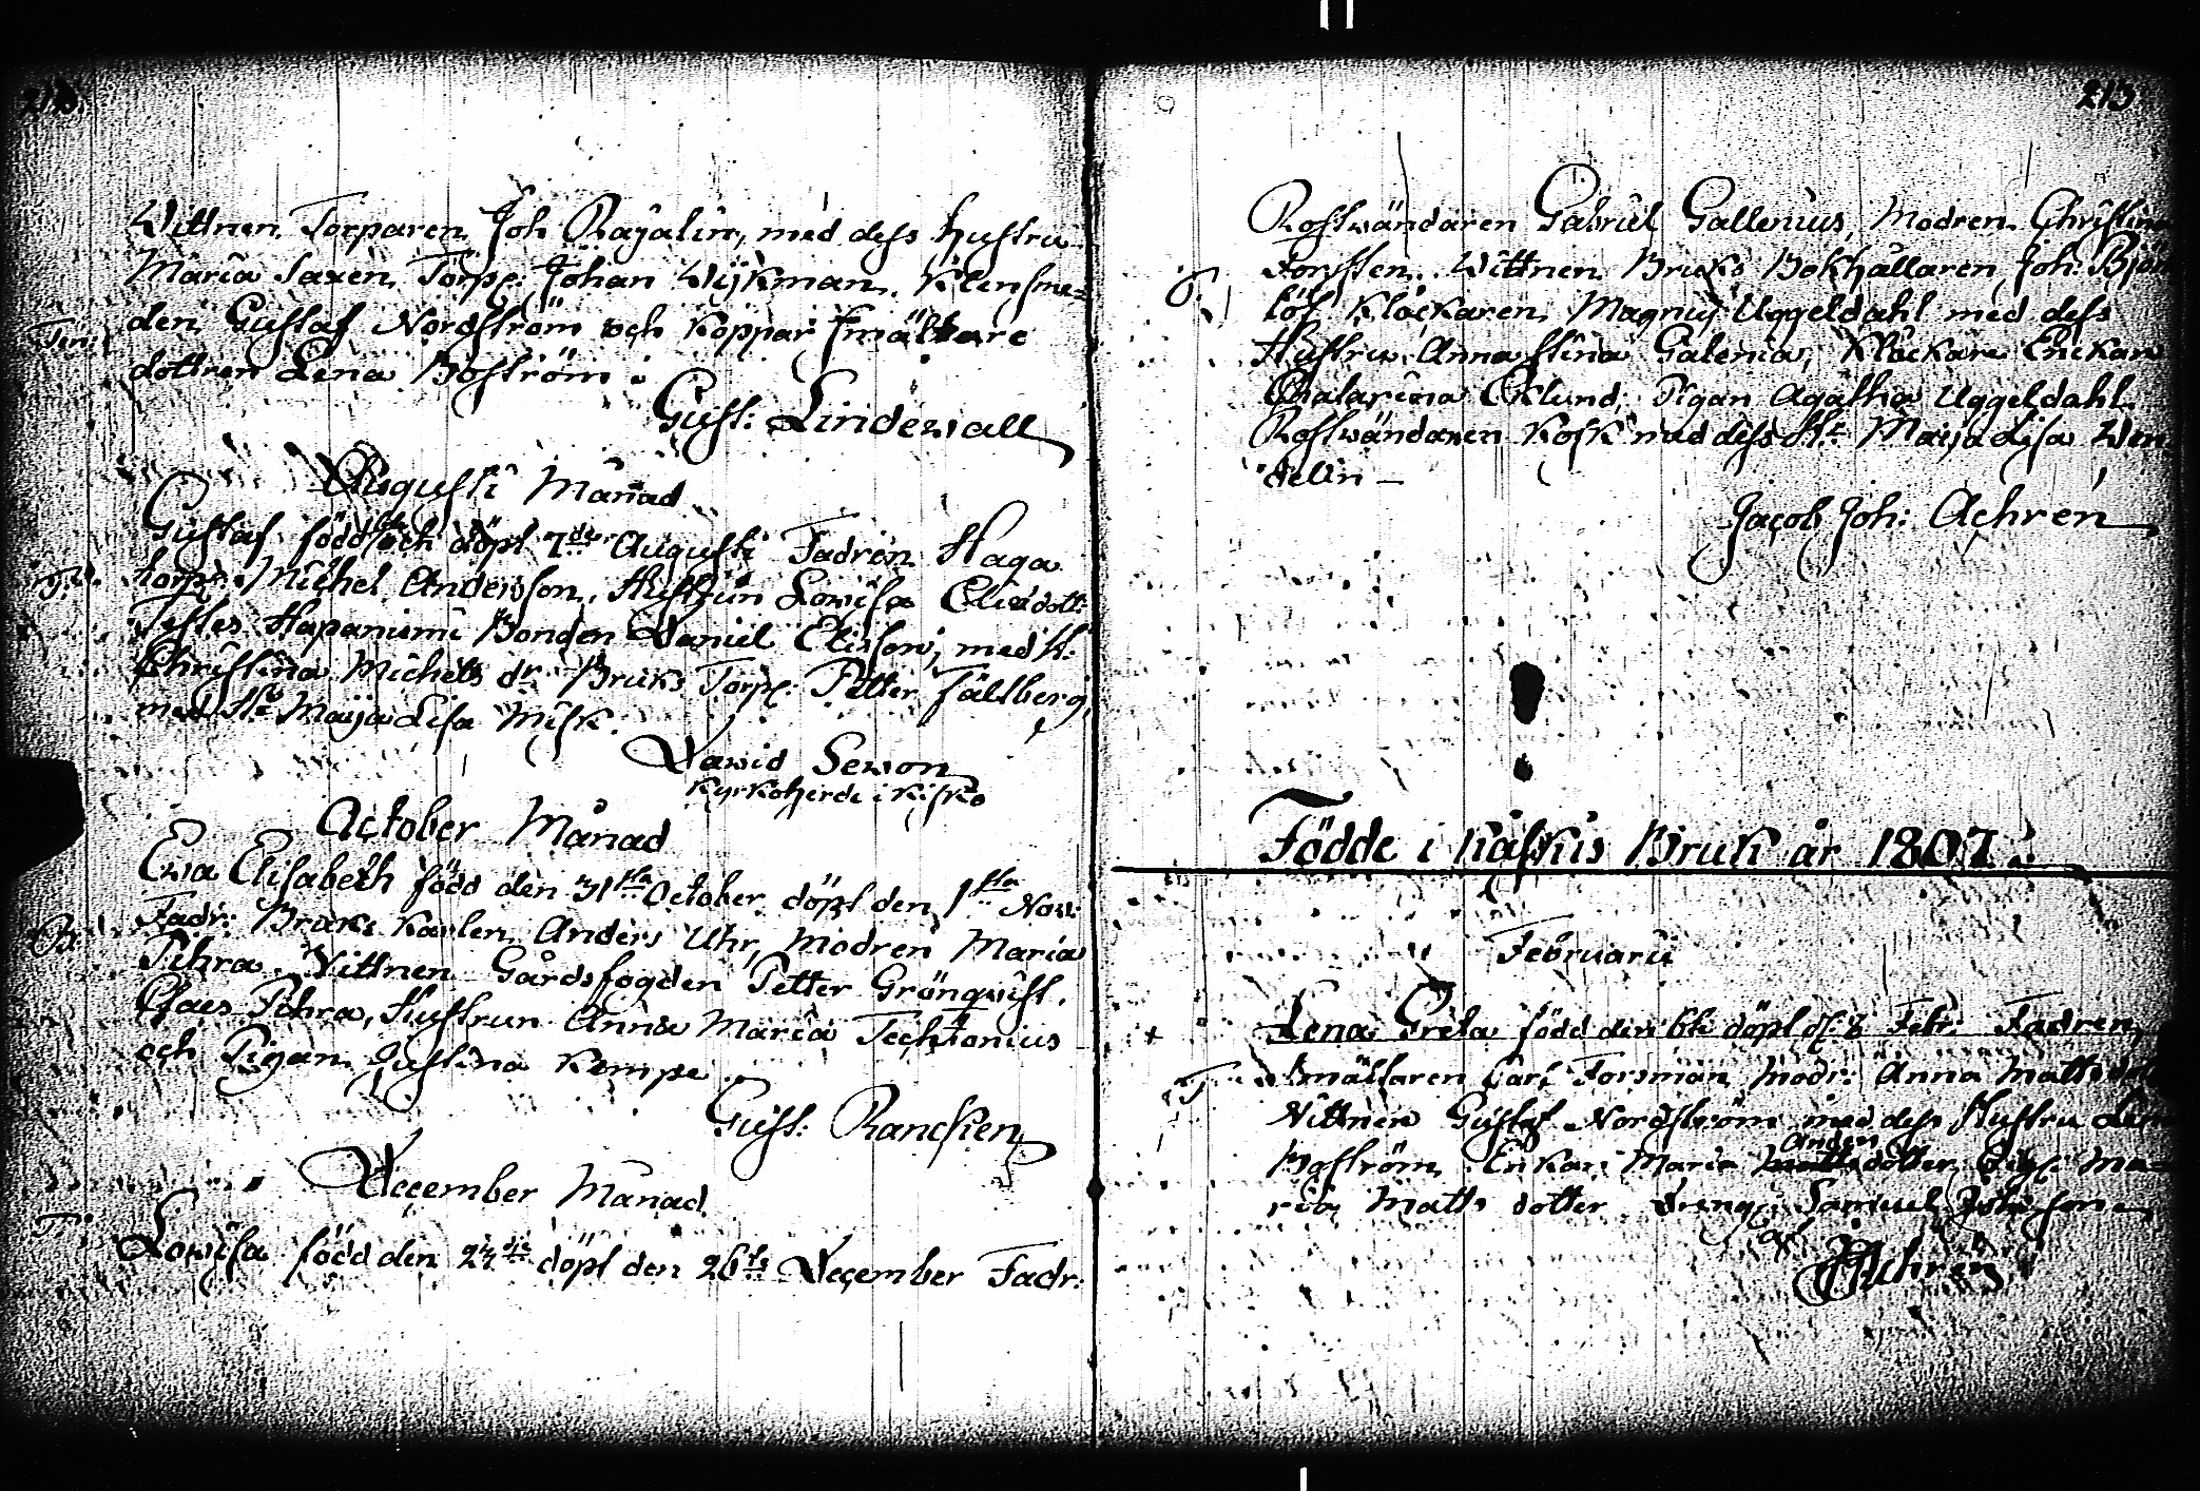 Wittnen Torparen Joh Rajalin, med dess hustru
Maria Saxen, Torp: Johan Wijkman, Klensme=
den Gustaf Nordström och Koppar smältare
dottren Lena Boström
Gust: Lindewall
Augusti Månad
Gustaf född och döpt 7de Augusti Fadren Haga
torp: Michel Andersson, Hustrun Lowisa Elisdott:
Testes Hapaniemi Bonden Daniel Elisson, med H:
Christina Michels dr Bruks Torp: Petter Fältberg,
med Hu Maija Lisa Misk.
Dawid Sewon
Kyrkoherde i Kisko
October Månad
Ewa Elisabeth född den 31sta October döpt den 1sta Now:
Fadr: Bruks Karlen Anders Uhr, Modren Maria
Pihra. Vittnen Gårdsfogden Petter Grönqwist,
Claes Pihra, Hustrun Anna Maria Techtonius
och Pigan Justina Kempe
Gust: Rancken
December Månad
Lowisa född den 24de döpt den 26te December Fadr:
213
Rostwändaren Gabriel Gallenius, Modren Christina
Forssten. Wittnen Bruks Bokhållaren Joh: Björk
löf Klockaren Magnus Uggeldahl med dess
Hustru Anna Stina Galenia, Klockare Enckan
Chatarina Eklund, Pigan Agatha Uggeldahl
Rostwändaren Kosk med dess H: Maija Lisa Wen
delin –
Jacob Joh: Achrén
Födde i Kåskis Bruk år 1807
Februarii
+ Lena Greta född den 6te döpt d: 8 Febr: Fadren
T Smältaren Carl Forsman Modr: Anna Matts dott
Vittnen Gustaf Nordström med dess Hustru Lena
Boström Enkan Maria Anders dotter Ma=
ria Matts dotter Dreng: Samuel Johansson
af JJAchrén